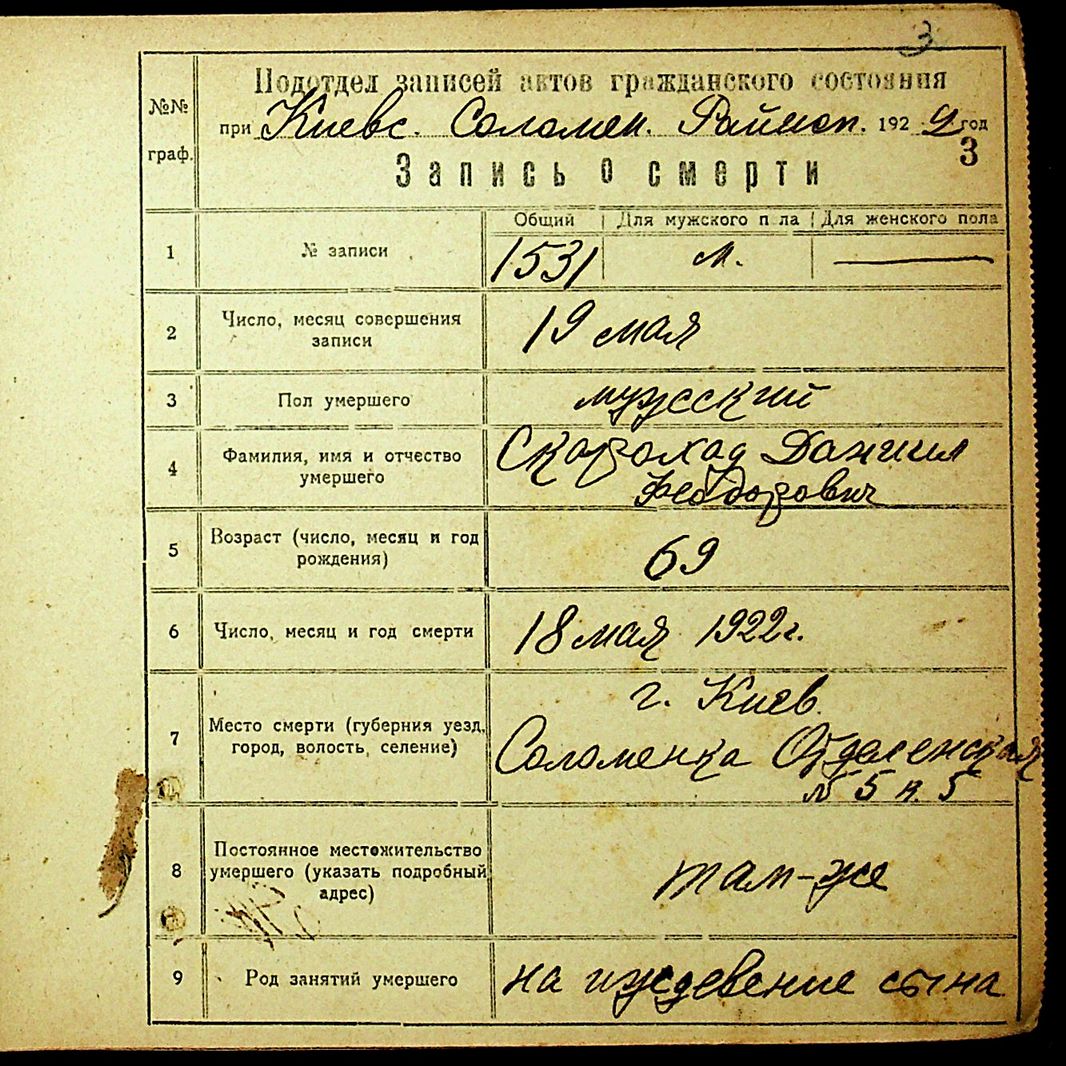 3
Подотдел записей актов гражданского состояния
№№ граф.
при Киевс. Соломен. Райисп. 192 год
3
Запись о смерти
Общий Для мужского пола Для женского пола
1 № записи 1531 м. —
2 Число, месяц совершения
записи
19 мая
3 Пол умершего мужсский
4 Фамилия, имя и отчество
умершего
Скороход Даниил
Феодорович
5 Возраст (число, месяц и год
рождения)
69
6 Число, месяц и год смерти 18 мая 1922 г.
7 Место смерти (губерния уезд,
город, волость, селение)
г. Киев.
Соломенка
№ 5 к. 5
8 Постоянное местожительство
умершего (указать подробный
адрес)
там-же
9 Род занятий умершего на иждевение сына